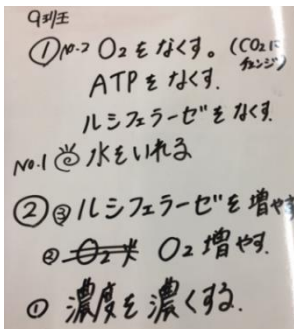 9班
① No.2 O₂をなくす。(CO₂にチェンジ)
ATPをなくす.
ルシフェラーゼをなくす.
No.1 水をいれる
② ③ルシフェラーゼを増やす
② O₂増やす.
① 濃度を濃くする.